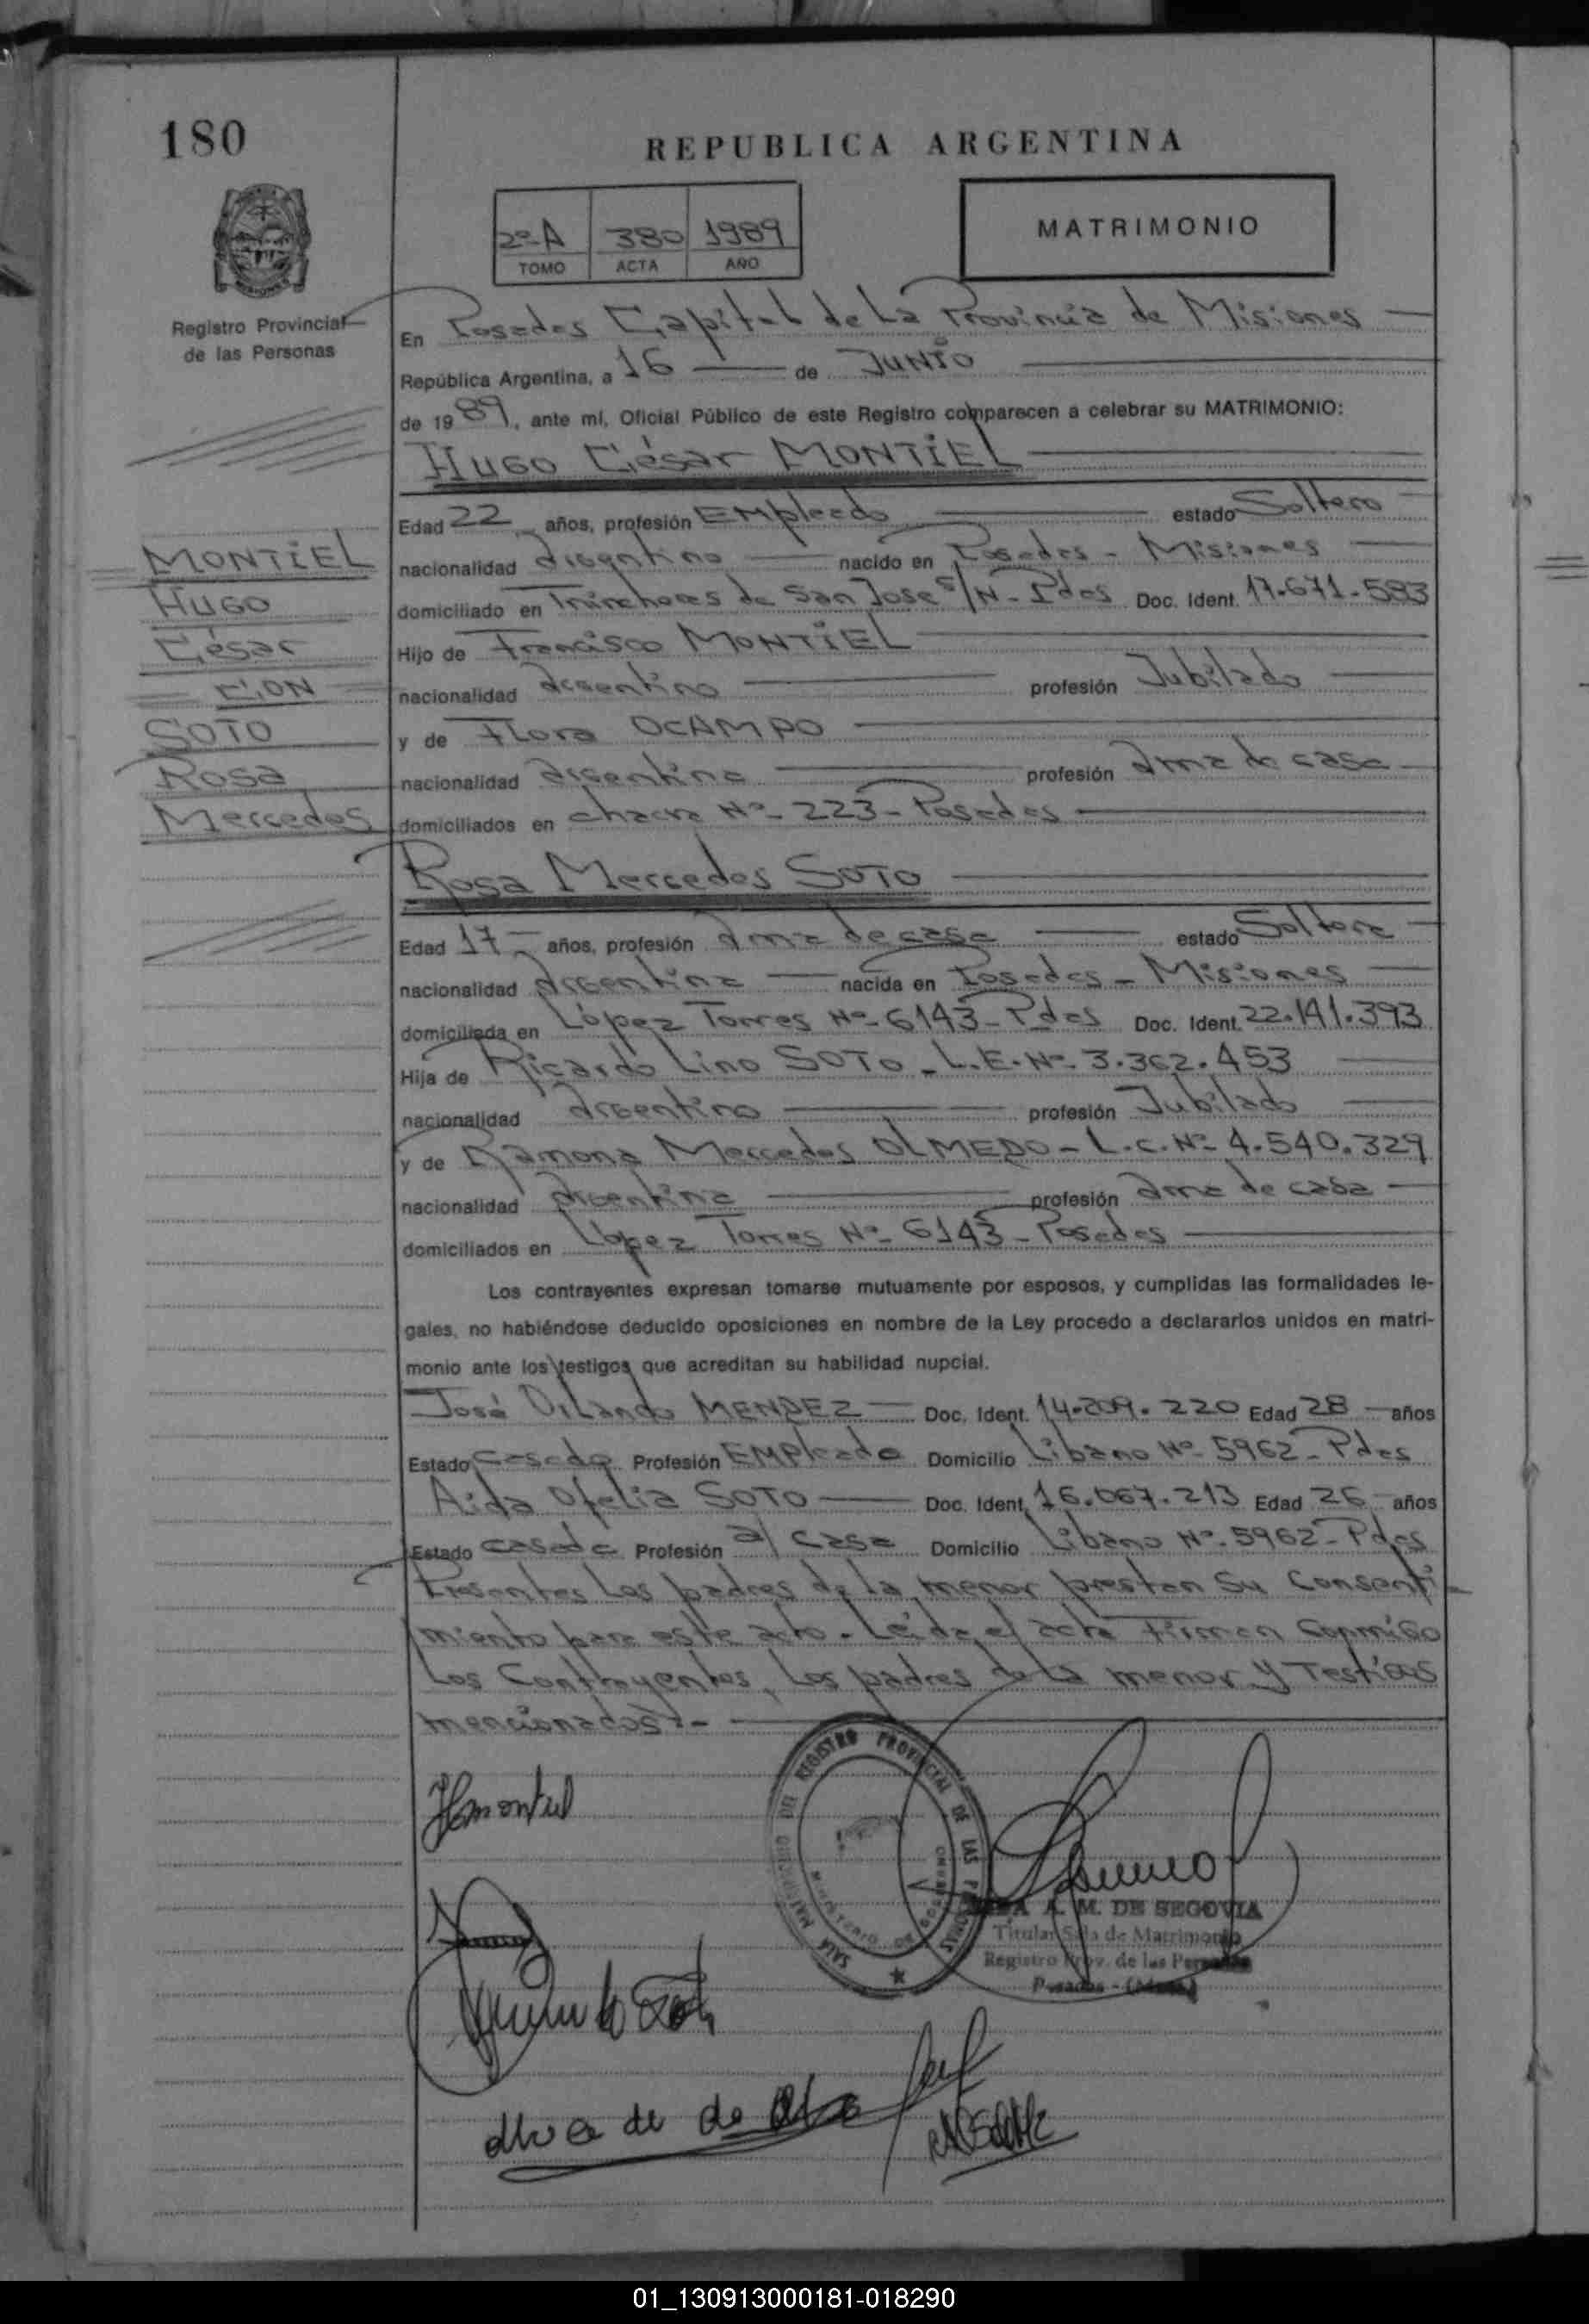 180
REPUBLICA ARGENTINA
2º A 380 1989
TOMO ACTA AÑO
MATRIMONIO
Registro Provincial
de las Personas
En Posadas Capital de la Provincia de Misiones
República Argentina, a 16 de JUNIO
de 1989, ante mí, Oficial Público de este Registro comparecen a celebrar su MATRIMONIO:
HUGO César MONTIEL
Edad 22 años, profesión Empleado estado Soltero
nacionalidad argentino nacido en Posadas - Misiones
domiciliado en Trincheras de San Jose S/N - Pdas Doc. Ident. 17.671.583
Hijo de Francisco MONTIEL
nacionalidad argentino profesión Jubilado
y de Flora OCAMPO
nacionalidad argentina profesión ama de casa
domiciliados en chacra Nº 223 - Posadas
MONTIEL
HUGO
César
CON
SOTO
Rosa
Mercedes
Rosa Mercedes SOTO
Edad 17 años, profesión ama de casa estado Soltera
nacionalidad argentina nacida en Posadas - Misiones
domiciliada en López Torres Nº 6143 - Pdas Doc. Ident. 22.141.393
Hija de Ricardo Lino SOTO - L.E. Nº 3.362.453
nacionalidad argentino profesión Jubilado
y de Ramona Mercedes OLMEDO - L.C. Nº 4.540.329
nacionalidad argentina profesión ama de casa
domiciliados en López Torres Nº 6143 - Posadas
Los contrayentes expresan tomarse mutuamente por esposos, y cumplidas las formalidades le-
gales, no habiéndose deducido oposiciones en nombre de la Ley procedo a declararlos unidos en matri-
monio ante los testigos que acreditan su habilidad nupcial.
José Orlando MENDEZ Doc. Ident. 14.209.220 Edad 28 años
Estado Casado Profesión Empleado Domicilio Libano Nº 5962 - Pdas
Aida Ofelia SOTO Doc. Ident. 16.067.213 Edad 26 años
Estado casada Profesión a/ casa Domicilio Libano Nº 5962 - Pdas
Presentes los padres de la menor prestan su consenti-
miento para este acto. Leída el acta Firman conmigo
los Contrayentes, los padres de la menor y Testigos
mencionados.-
Hmontiel
SALA MATRIMONIO DEL REGISTRO PROVINCIAL DE LAS PERSONAS
MINISTERIO DE GOBIERNO
A. M. DE SEGOVIA
Titular Sala de Matrimonio
Registro Prov. de las Personas
Posadas - (Mnes.)
01_130913000181-018290